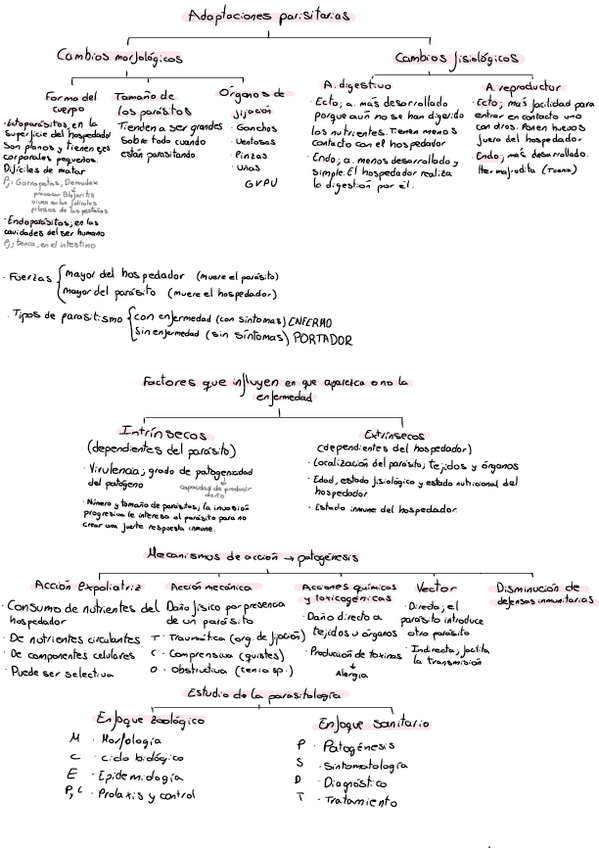 Adaptaciones parasitarias
Cambios morfológicos
Cambios fisiológicos
Forma del
cuerpo
· Ectoparásitos; en la
superficie del hospedador
Son planos y tienen ejes
corporales pequeños.
Difíciles de matar
Pj: Garrapatas, Demodex
provocan Blefaritis
viven en los folículos
pilosos de las pestañas
· Endoparásitos; en las
cavidades del ser humano
Pj; tenia, en el intestino
Tamaño de
los parásitos
Tienden a ser grandes
Sobre todo cuando
están parasitando.
Órganos de
fijación
· Ganchos
· Ventosas
· Pinzas
· Uñas
GVPU
A. digestivo
· Ecto; a. más desarrollado
porque aún no se han digerido
los nutrientes. Tienen menos
contacto con el hospedador
· Endo; a. menos desarrollado y
simple. El hospedador realiza
la digestión por él.
A. reproductor
· Ecto; más facilidad para
entrar en contacto uno
con otros. Ponen huevos
fuera del hospedador
· Endo; más desarrollado.
Hermafrodita (Tenia)
· Fuerzas { mayor del hospedador (muere el parásito)
mayor del parásito (muere el hospedador)
· Tipos de parasitismo { con enfermedad (con síntomas) ENFERMO
sin enfermedad (sin síntomas) PORTADOR
Factores que influyen en que aparezca o no la
enfermedad
Intrínsecos
(dependientes del parásito)
· Virulencia; grado de patogenicidad
del patógeno
capacidad de producir
daño
· Número y tamaño de parásitos; la invasión
progresiva le interesa al parásito para no
crear una fuerte respuesta inmune.
Extrínsecos
(dependientes del hospedador)
· Localización del parásito; tejidos y órganos
· Edad, estado fisiológico y estado nutricional del
hospedador
· Estado inmune del hospedador.
Mecanismos de acción → patogénesis
Acción expoliatriz
· Consumo de nutrientes del
hospedador
· De nutrientes circulantes
· De componentes celulares
· Puede ser selectiva
Acción mecánica
Daño físico por presencia
de un parásito
T · Traumática (org. de fijación)
C · Compresiva (quistes)
O · Obstructiva (tenia sp.)
Acciones químicas
y toxicogénicas
· Daño directo a
tejidos u órganos
· Producción de toxinas
↓
Alergia
Vector
· Directa; el
parásito introduce
otro parásito
· Indirecta; facilita
la transmisión
Disminución de
defensas inmunitarias
Estudio de la parasitología
Enfoque zoológico
M · Morfología
C · Ciclo biológico
E · Epidemiología
P, C · Profaxis y control
Enfoque sanitario
P · Patogénesis
S · Sintomatología
D · Diagnóstico
T · Tratamiento